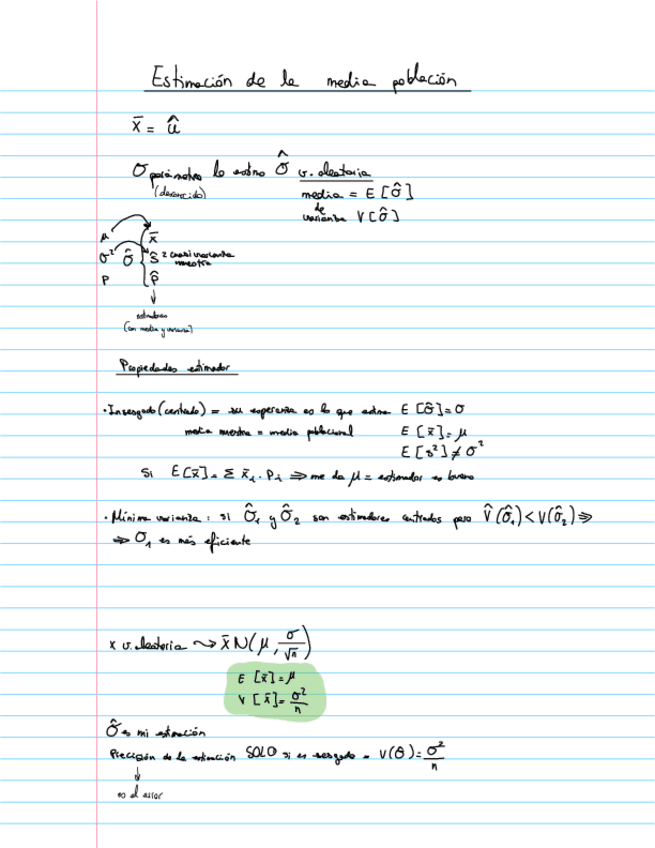 Estimación de la media población
x̄ = û
σ parámetro lo estimo σ̂ v. aleatoria
(desconocido) media = E[σ̂]
de
varianza V[σ̂]
μ x̄
σ² σ̂ ŝ² cuasivarianza
muestra
p p̂
estimadores
(con media y varianza)
Propiedades estimador
· Insesgado (centrado) = su esperanza es lo que estima E[σ̂] = σ
media muestra = media poblacional E[x̄] = μ
E[s²] ≠ σ²
Si E[x̄] = Σ x̄ᵢ · Pᵢ ⇒ me da μ = estimador es bueno
· Mínima varianza: si σ̂₁ y σ̂₂ son estimadores centrados pero V̂(σ̂₁) < V(σ̂₂) ⇒
⇒ σ₁ es más eficiente
x v. aleatoria ⤳ x̄ N(μ, σ/√n)
E[x̄] = μ
V[x̄] = σ²/n
σ̂ es mi estimación
Precisión de la estimación SOLO si es sesgado = V(θ) = σ²/n
es el error